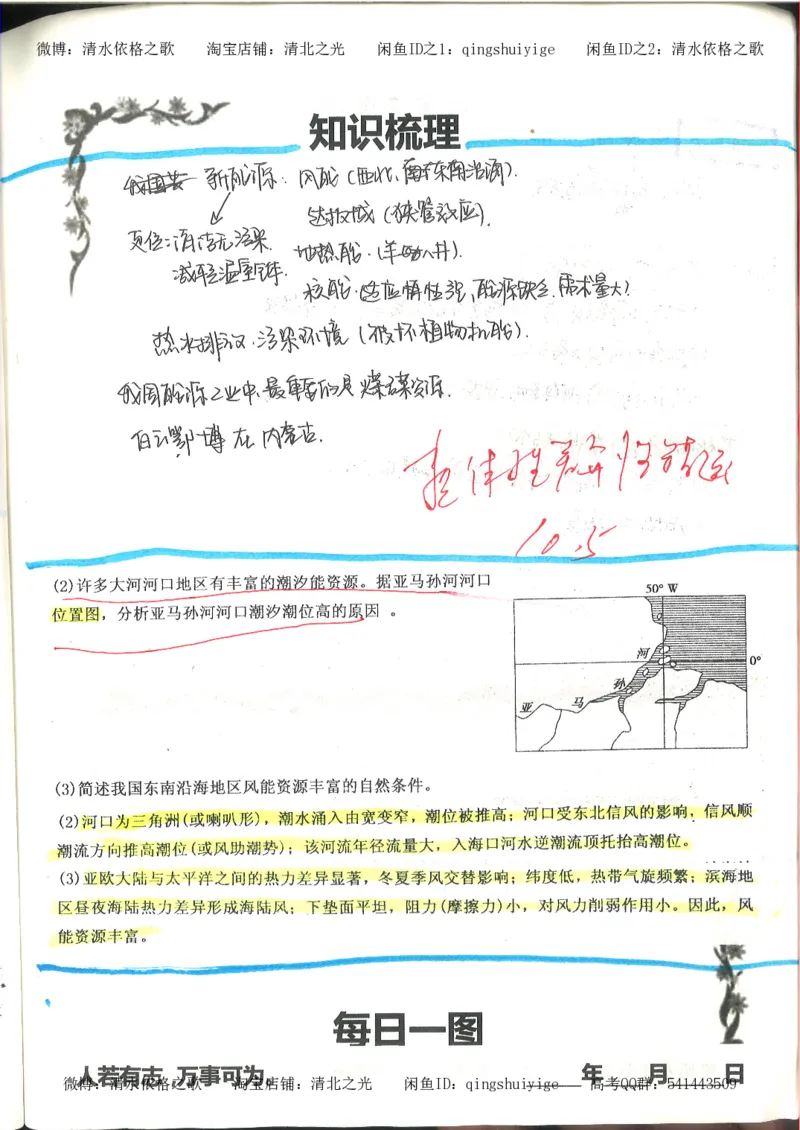 微博：清水依格之歌 淘宝店铺：清北之光 闲鱼ID之1：qingshuiyige 闲鱼ID之2：清水依格之歌
知识梳理
新能源：风能（西北、东南沿海）.
达坂城（狭管效应）.
更倾：清洁无污染.
减轻温室效.
地热能.（羊八井）.
核能.适应惰性强,能源缺乏.需求量大）
热水排放.污染环境（破坏植物机能）.
我国能源工业中,最重要的是煤炭资源.
白云鄂博在内蒙古.
10.5
(2)许多大河河口地区有丰富的潮汐能资源。据亚马孙河河口
位置图，分析亚马孙河河口潮汐潮位高的原因 。
50° W
河
0°
孙
马
亚
(3)简述我国东南沿海地区风能资源丰富的自然条件。
(2)河口为三角洲(或喇叭形)，潮水涌入由宽变窄，潮位被推高；河口受东北信风的影响，信风顺
潮流方向推高潮位(或风助潮势)；该河流年径流量大，入海口河水逆潮流顶托抬高潮位。
(3)亚欧大陆与太平洋之间的热力差异显著，冬夏季风交替影响；纬度低，热带气旋频繁；滨海地
区昼夜海陆热力差异形成海陆风；下垫面平坦，阻力(摩擦力)小，对风力削弱作用小。因此，风
能资源丰富。
每日一图
人若有志，万事可为。 年 月 日
微博：清水依格之歌 淘宝店铺：清北之光 闲鱼ID：qingshuiyige 高考QQ群：541443509